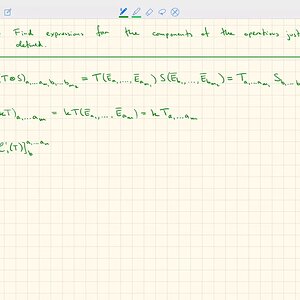 Find expressions for the components of the operations just
defined.
(T⊗S)_{a₁...a_{m₁}b₁...b_{m₂}} = T(E̅_{a₁},...,E̅_{a_{m₁}}) S(E̅_{b₁},...,E̅_{b_{m₂}}) = T_{a₁...a_{m₁}} S_{b₁...b
kT)_{a₁...a_m} = kT(E̅_{a₁},...,E̅_{a_m}) = kT_{a₁...a_m}
(T)]